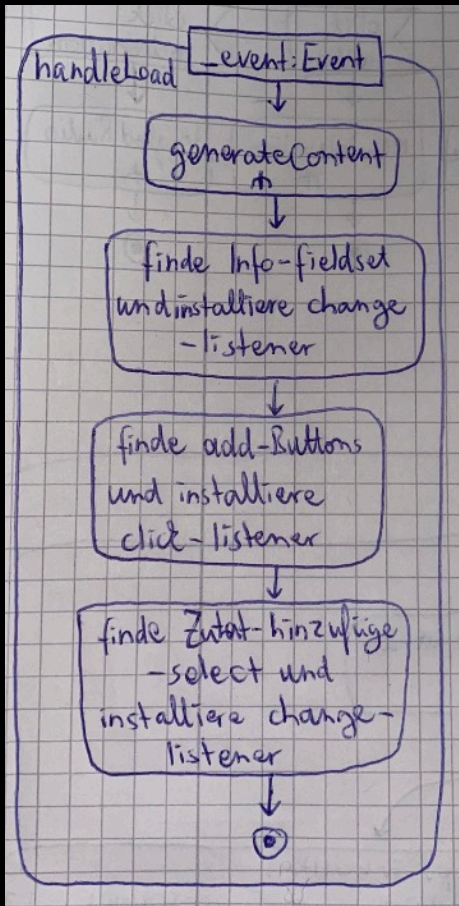 _event:Event
handleLoad
generateContent
finde Info-fieldset
und installiere change
-listener
finde add-Buttons
und installiere
click-listener
finde Zutat-hinzufüge
-select und
installiere change-
listener